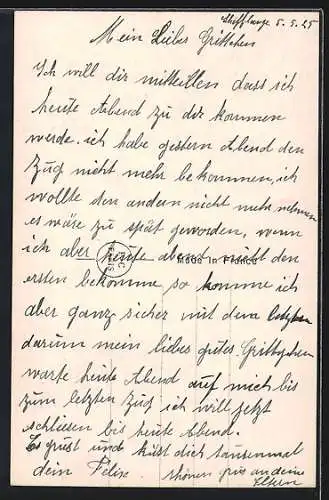 5. 5. 25
Mein Liebes Grittchen
Ich will dir mitteillen dass ich
heute Abend zu dir kommen
werde. ich habe gestern Abend den
Zug nicht mehr bekommen, ich
wollte den andern nicht mehr nehmen
es wäre zu spät geworden, wenn
ich aber heute abend nicht den
Made in France
ersten bekomme so komme ich
aber ganz sicher mit dem letzten
darum mein liebes gutes Grittgchen
warte heute Abend auf mich bis
zum letzten Zug ich will jetzt
schliesen bis heute Abend.
Es grüst und küst dich tausenmal
dein Felix schönen grus an deine
Eltern